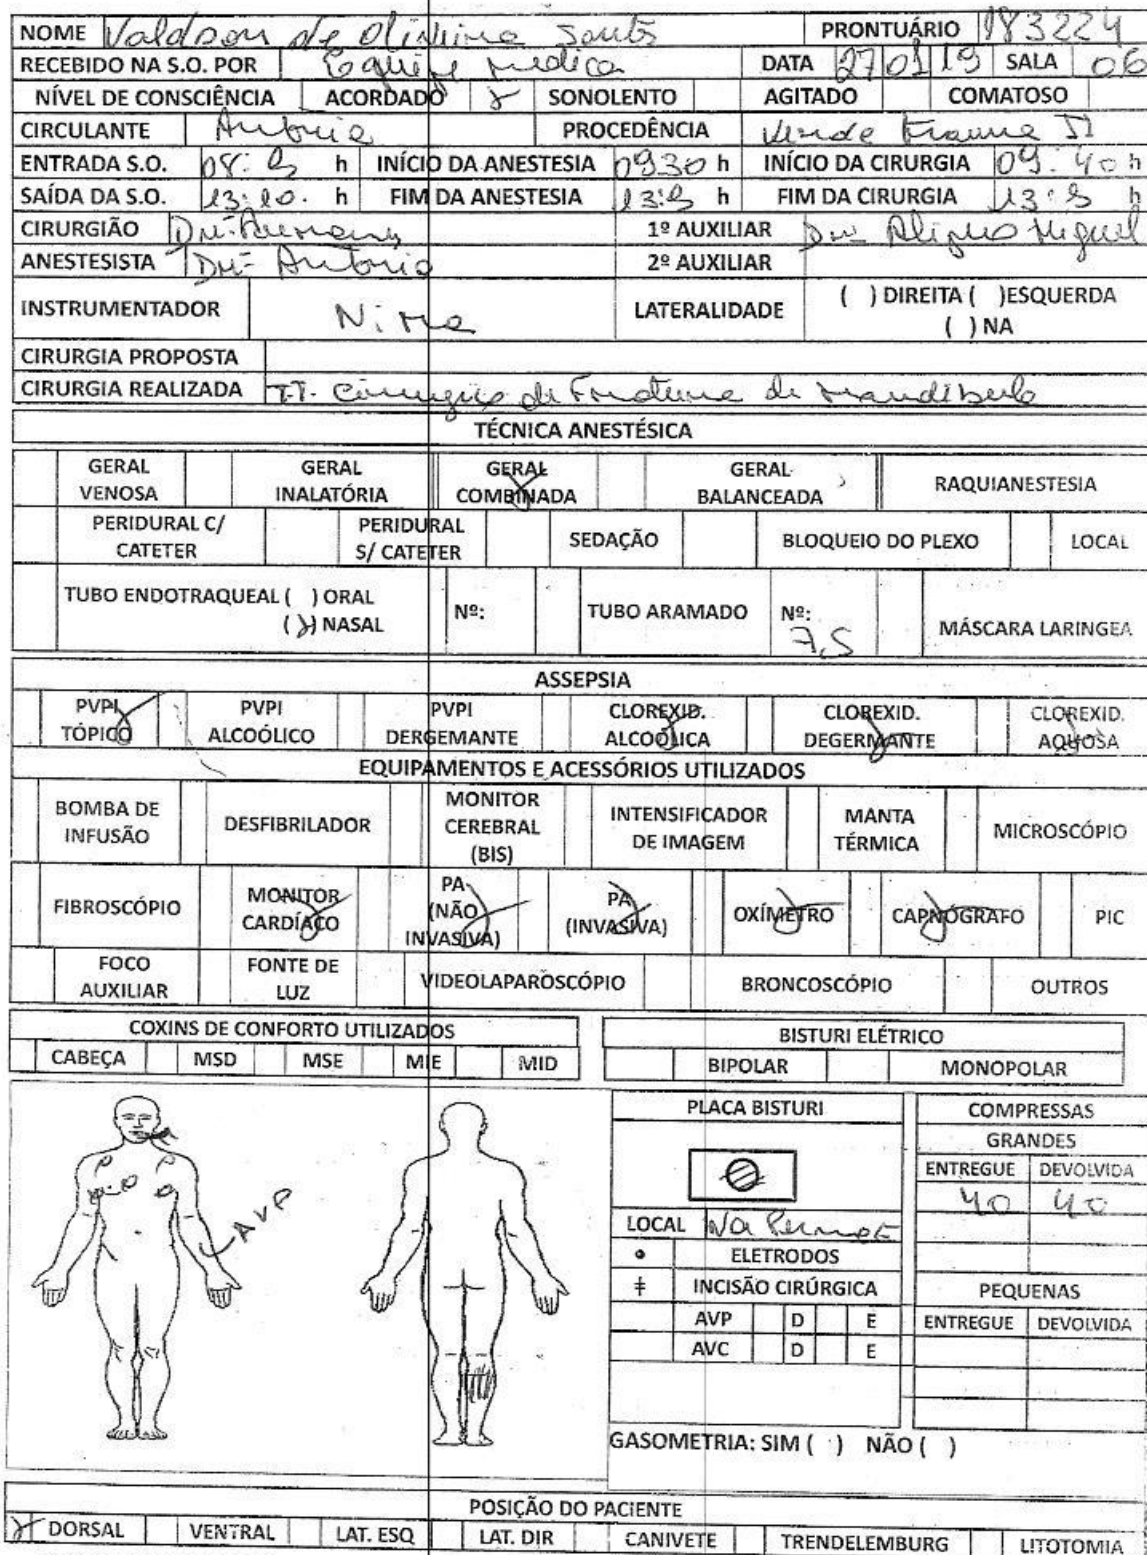 NOME Valdson de Oliveira Santos PRONTUÁRIO 183224
RECEBIDO NA S.O. POR Equipe medica DATA 27 01 19 SALA 06
NÍVEL DE CONSCIÊNCIA ACORDADO X SONOLENTO AGITADO COMATOSO
CIRCULANTE Antonia PROCEDÊNCIA Verde Trauma II
ENTRADA S.O. 08: h INÍCIO DA ANESTESIA 0930 h INÍCIO DA CIRURGIA 09:40 h
SAÍDA DA S.O. 13:10. h FIM DA ANESTESIA 13: h FIM DA CIRURGIA 13: h
CIRURGIÃO 1º AUXILIAR Miguel
ANESTESISTA Drº Antonio 2º AUXILIAR
INSTRUMENTADOR LATERALIDADE ( ) DIREITA ( )ESQUERDA
( ) NA
CIRURGIA PROPOSTA
CIRURGIA REALIZADA TT. Cirurgico de Fratura de Mandibula
TÉCNICA ANESTÉSICA
GERAL VENOSA GERAL INALATÓRIA GERAL COMBINADA X GERAL BALANCEADA RAQUIANESTESIA
PERIDURAL C/ CATETER PERIDURAL S/ CATETER SEDAÇÃO BLOQUEIO DO PLEXO LOCAL
TUBO ENDOTRAQUEAL ( ) ORAL Nº: TUBO ARAMADO Nº: 7,5 MÁSCARA LARINGEA
(X) NASAL
ASSEPSIA
PVPI TÓPICO X PVPI ALCOÓLICO PVPI DERGEMANTE CLOREXID. ALCOÓLICA X CLOREXID. DEGERMANTE X CLOREXID. AQUOSA X
EQUIPAMENTOS E ACESSÓRIOS UTILIZADOS
BOMBA DE INFUSÃO DESFIBRILADOR MONITOR CEREBRAL (BIS) INTENSIFICADOR DE IMAGEM MANTA TÉRMICA MICROSCÓPIO
FIBROSCÓPIO MONITOR CARDÍACO X PA (NÃO INVASIVA) X PA (INVASIVA) X OXÍMETRO X CAPNÓGRAFO X PIC
FOCO AUXILIAR FONTE DE LUZ VIDEOLAPAROSCÓPIO BRONCOSCÓPIO OUTROS
COXINS DE CONFORTO UTILIZADOS
CABEÇA MSD MSE MIE MID
BISTURI ELÉTRICO
BIPOLAR MONOPOLAR
AVP
PLACA BISTURI
LOCAL Na Perna E
ELETRODOS
INCISÃO CIRÚRGICA
AVP D E
AVC D E
COMPRESSAS
GRANDES
ENTREGUE DEVOLVIDA
40 40
PEQUENAS
ENTREGUE DEVOLVIDA
GASOMETRIA: SIM ( ) NÃO ( )
POSIÇÃO DO PACIENTE
X DORSAL VENTRAL LAT. ESQ LAT. DIR CANIVETE TRENDELEMBURG LITOTOMIA